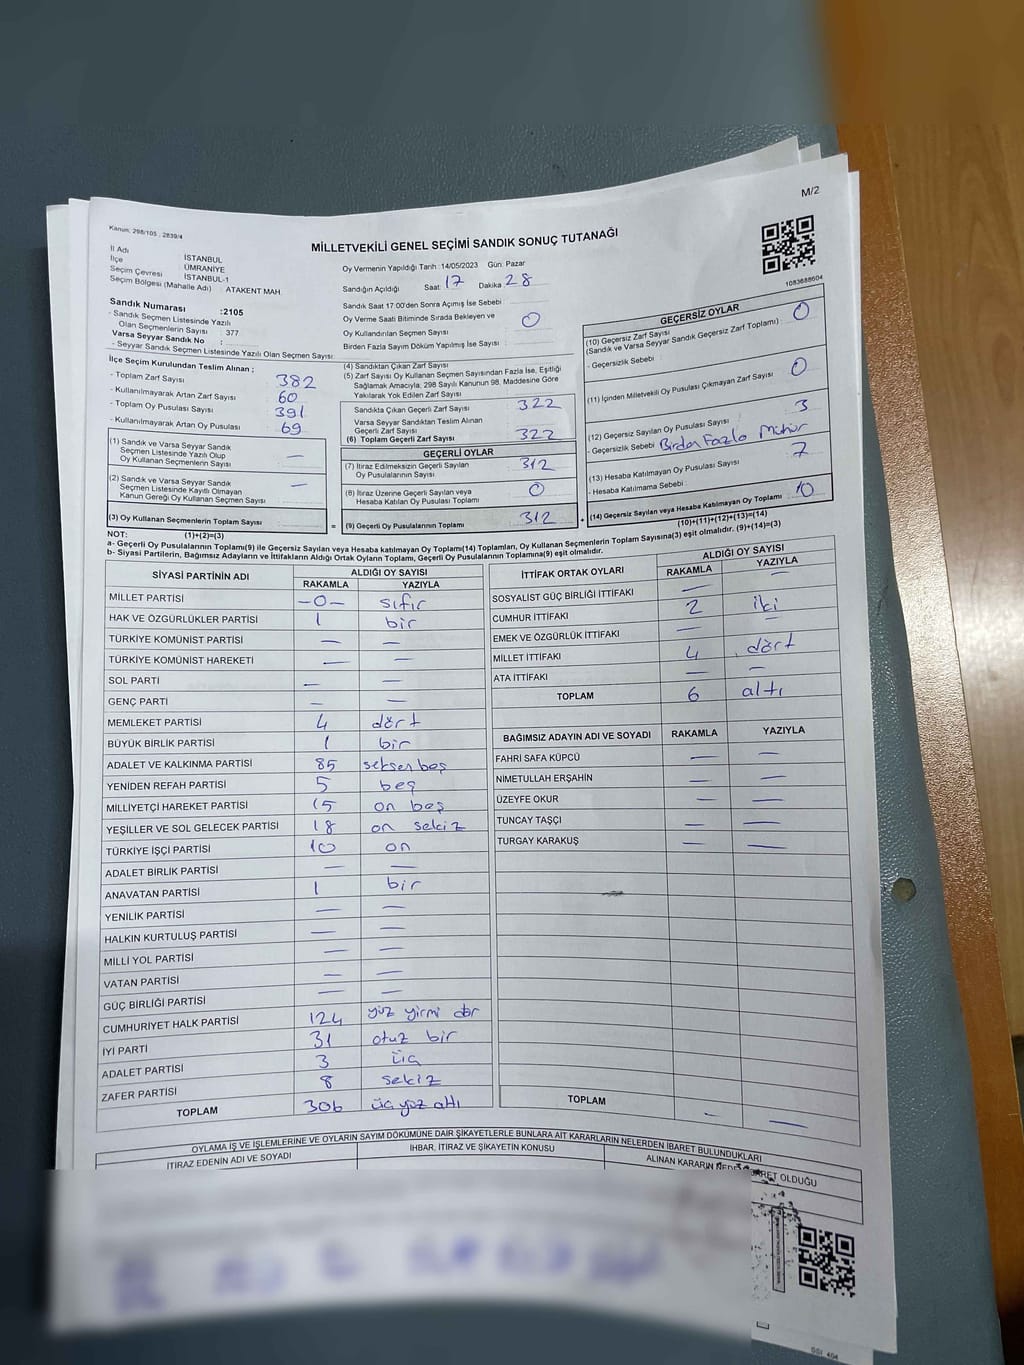 M/2
Kanun, 298/105 , 2839/4
MİLLETVEKİLİ GENEL SEÇİMİ SANDIK SONUÇ TUTANAĞI
1083688604
İl Adı İSTANBUL
İlçe ÜMRANİYE
Seçim Çevresi İSTANBUL-1
Seçim Bölgesi (Mahalle Adı) : ATAKENT MAH.
Sandık Numarası :2105
- Sandık Seçmen Listesinde Yazılı
Olan Seçmenlerin Sayısı : 377
Varsa Seyyar Sandık No :
- Seyyar Sandık Seçmen Listesinde Yazılı Olan Seçmen Sayısı:
Oy Vermenin Yapıldığı Tarih :14/05/2023 Gün: Pazar
Sandığın Açıldığı Saat: 17 Dakika: 28
Sandık Saat 17:00'den Sonra Açımış İse Sebebi :
Oy Verme Saati Bitiminde Sırada Bekleyen ve
Oy Kullandırılan Seçmen Sayısı 0
Birden Fazla Sayım Döküm Yapılmış İse Sayısı :
İlçe Seçim Kurulundan Teslim Alınan ;
- Toplam Zarf Sayısı 382
- Kullanılmayarak Artan Zarf Sayısı 60
- Toplam Oy Pusulası Sayısı 391
- Kullanılmayarak Artan Oy Pusulası 69
(1) Sandık ve Varsa Seyyar Sandık
Seçmen Listesinde Yazılı Olup
Oy Kullanan Seçmenlerin Sayısı —
(2) Sandık ve Varsa Seyyar Sandık
Seçmen Listesinde Kayıtlı Olmayan
Kanun Gereği Oy Kullanan Seçmen Sayısı —
(3) Oy Kullanan Seçmenlerin Toplam Sayısı
(1)+(2)=(3)
(4) Sandıktan Çıkan Zarf Sayısı
(5) Zarf Sayısı Oy Kullanan Seçmen Sayısından Fazla İse, Eşitliği
Sağlamak Amacıyla; 298 Sayılı Kanunun 98. Maddesine Göre
Yakılarak Yok Edilen Zarf Sayısı
Sandıkta Çıkan Geçerli Zarf Sayısı 322
Varsa Seyyar Sandıktan Teslim Alınan
Geçerli Zarf Sayısı
(6) Toplam Geçerli Zarf Sayısı 322
GEÇERLİ OYLAR
(7) İtiraz Edilmeksizin Geçerli Sayılan
Oy Pusulalarının Sayısı 312
(8) İtiraz Üzerine Geçerli Sayılan veya
Hesaba Katılan Oy Pusulası Toplamı 0
= (9) Geçerli Oy Pusulalarının Toplamı 312 +
GEÇERSİZ OYLAR
(10) Geçersiz Zarf Sayısı
(Sandık ve Varsa Seyyar Sandık Geçersiz Zarf Toplamı) 0
- Geçersizlik Sebebi :
(11) İçinden Milletvekili Oy Pusulası Çıkmayan Zarf Sayısı 0
(12) Geçersiz Sayılan Oy Pusulası Sayısı 3
- Geçersizlik Sebebi Birden Fazla Mühür
(13) Hesaba Katılmayan Oy Pusulası Sayısı 7
- Hesaba Katılmama Sebebi :
(14) Geçersiz Sayılan veya Hesaba Katılmayan Oy Toplamı 10
(10)+(11)+(12)+(13)=(14)
NOT:
a- Geçerli Oy Pusulalarının Toplamı(9) ile Geçersiz Sayılan veya Hesaba katılmayan Oy Toplamı(14) Toplamları, Oy Kullanan Seçmenlerin Toplam Sayısına(3) eşit olmalıdır. (9)+(14)=(3)
b- Siyasi Partilerin, Bağımsız Adayların ve İttifakların Aldığı Ortak Oyların Toplamı, Geçerli Oy Pusulalarının Toplamına(9) eşit olmalıdır.
SİYASİ PARTİNİN ADI ALDIĞI OY SAYISI
RAKAMLA YAZIYLA
MİLLET PARTİSİ —0— sıfır
HAK VE ÖZGÜRLÜKLER PARTİSİ 1 bir
TÜRKİYE KOMÜNİST PARTİSİ — —
TÜRKİYE KOMÜNİST HAREKETİ — —
SOL PARTİ — —
GENÇ PARTİ — —
MEMLEKET PARTİSİ 4 dört
BÜYÜK BİRLİK PARTİSİ 1 bir
ADALET VE KALKINMA PARTİSİ 85 seksen beş
YENİDEN REFAH PARTİSİ 5 beş
MİLLİYETÇİ HAREKET PARTİSİ 15 on beş
YEŞİLLER VE SOL GELECEK PARTİSİ 18 on sekiz
TÜRKİYE İŞÇİ PARTİSİ 10 on
ADALET BİRLİK PARTİSİ — —
ANAVATAN PARTİSİ 1 bir
YENİLİK PARTİSİ — —
HALKIN KURTULUŞ PARTİSİ — —
MİLLİ YOL PARTİSİ — —
VATAN PARTİSİ — —
GÜÇ BİRLİĞİ PARTİSİ — —
CUMHURİYET HALK PARTİSİ 124 yüz yirmi dör
İYİ PARTİ 31 otuz bir
ADALET PARTİSİ 3 üç
ZAFER PARTİSİ 8 sekiz
TOPLAM 306 üç yüz altı
İTTİFAK ORTAK OYLARI ALDIĞI OY SAYISI
RAKAMLA YAZIYLA
SOSYALİST GÜÇ BİRLİĞİ İTTİFAKI — —
CUMHUR İTTİFAKI 2 iki
EMEK VE ÖZGÜRLÜK İTTİFAKI — —
MİLLET İTTİFAKI 4 dört
ATA İTTİFAKI — —
TOPLAM 6 altı
BAĞIMSIZ ADAYIN ADI VE SOYADI RAKAMLA YAZIYLA
FAHRİ SAFA KÜPCÜ — —
NİMETULLAH ERŞAHİN — —
ÜZEYFE OKUR — —
TUNCAY TAŞÇI — —
TURGAY KARAKUŞ — —
TOPLAM — —
OYLAMA İŞ VE İŞLEMLERİNE VE OYLARIN SAYIM DÖKÜMÜNE DAİR ŞİKAYETLERLE BUNLARA AİT KARARLARIN NELERDEN İBARET BULUNDUKLARI
İTİRAZ EDENİN ADI VE SOYADI İHBAR, İTİRAZ VE ŞİKAYETİN KONUSU ALINAN KARARIN OLDUĞU